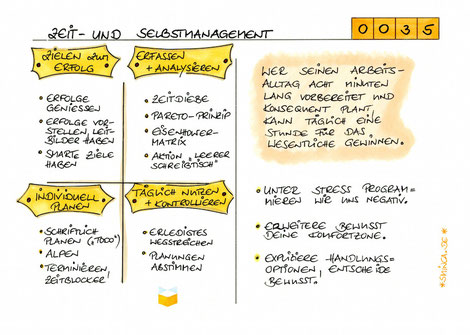 ZEIT- UND SELBSTMANAGEMENT
0035
ZIELEN ZUM
ERFOLG
• ERFOLGE
GENIESSEN
• ERFOLGE VOR-
STELLEN, LEIT-
BILDER HABEN
• SMARTE ZIELE
HABEN
ERFASSEN
+ ANALYSIEREN
• ZEITDIEBE
• PARETO-PRINZIP
• EISENHOWER-
MATRIX
• AKTION „LEERER
SCHREIBTISCH"
INDIVIDUELL
PLANEN
• SCHRIFTLICH
PLANEN („TODO")
• ALPEN
• TERMINIEREN,
ZEITBLOCKER!
TÄGLICH NUTZEN
+ KONTROLLIEREN
• ERLEDIGTES
WEGSTREICHEN
• PLANUNGEN
ABSTIMMEN
WER SEINEN ARBEITS-
ALLTAG ACHT MINUTEN
LANG VORBEREITET UND
KONSEQUENT PLANT,
KANN TÄGLICH EINE
STUNDE FÜR DAS
WESENTLICHE GEWINNEN.
• UNTER STRESS PROGRAM-
MIEREN WIR UNS NEGATIV.
• ERWEITERE BEWUSST
DEINE KOMFORTZONE.
• EXPLIZIERE HANDLUNGS-
OPTIONEN, ENTSCHEIDE
BEWUSST.